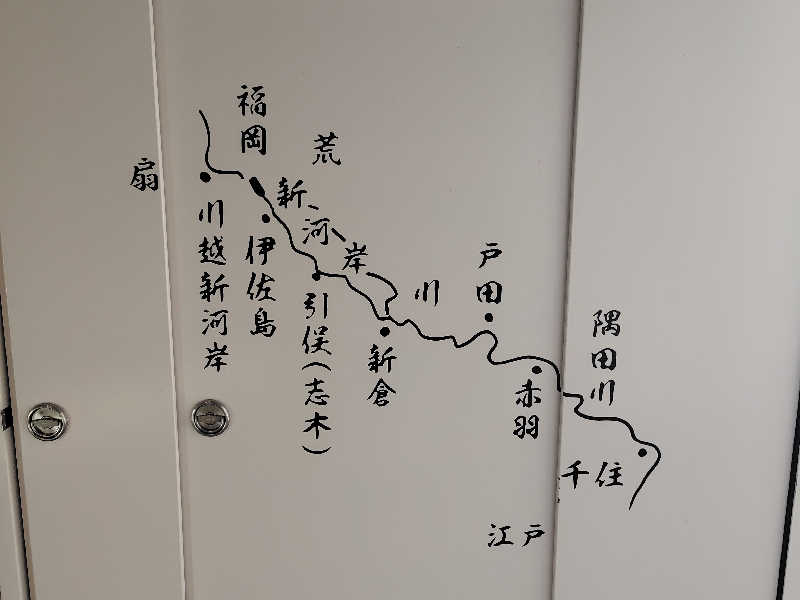 扇
福岡
川越新河岸
伊佐島
荒
新河岸
川
引俣(志木)
新倉
戸田
赤羽
隅田川
千住
江戸